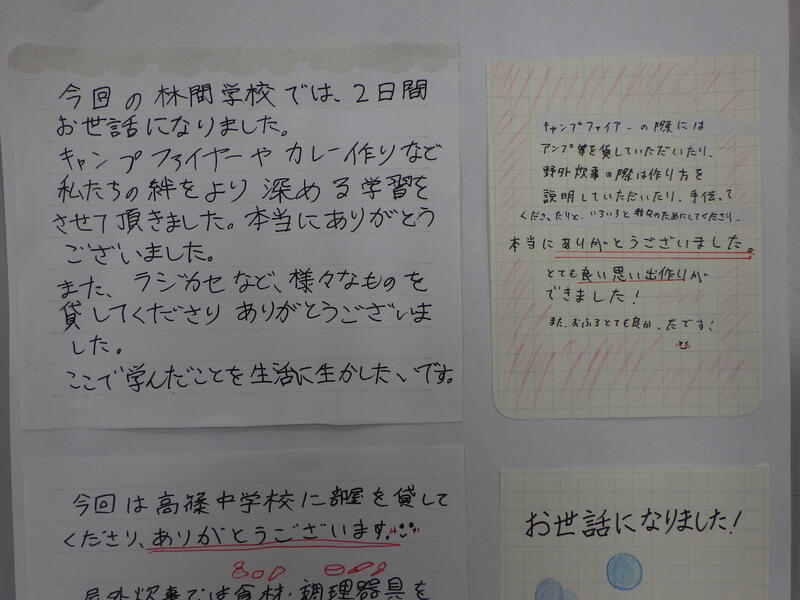 今回の林間学校では、2日間
お世話になりました。
キャンプファイヤーやカレー作りなど
私たちの絆をより深める学習を
させて頂きました。本当にありがとう
ございました。
また、ラジカセなど、様々なものを
貸してくださり ありがとうございま
した。
ここで学んだことを生活に生かしたいです。
キャンプファイアーの際には
アンプ等を貸していただいたり、
野外炊事の際は作り方を
説明していただいたり、手伝って
くださったりと、いろいろと我々のためにしてくださり、
本当にありがとうございました。
とても良い思い出作りが
できました!
また、おふろとても良かったです!
今回は高篠中学校に部屋を貸して
くださり、ありがとうございます。
屋外炊事では食材・調理器具を
お世話になりました!